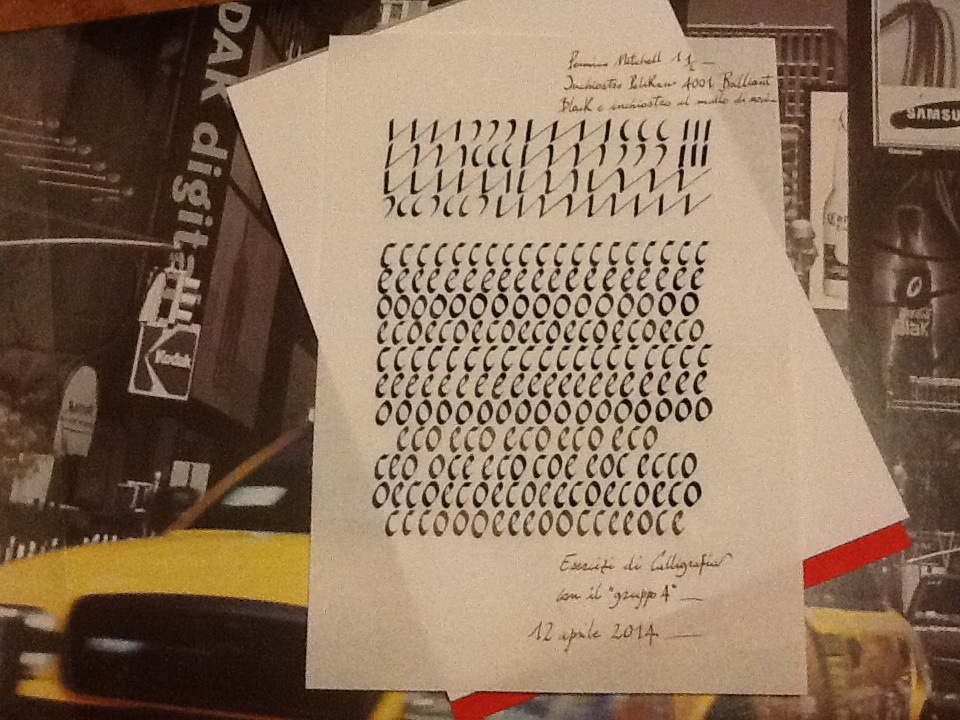 Pennino Mitchell 1 1/2
Inchiostro Pelikan 4001 Brilliant
Black e inchiostro al mallo di noce
ccccccccccccccccccc
eeeeeeeeeeeeeeeeeee
ooooooooooooooooo
ecoecoecoecoecoecoeco
cccccccccccccccccccc
eeeeeeeeeeeeeeeeeee
oooooooooooooooooo
eco eco eco eco eco
ceo oce eco coe eoc ecco
oecoecoecoeccoecoeco
cccoooeeeoocceeoce
Esercizi di Calligrafia
con il "gruppo 4"
12 aprile 2014
DAK digital
Kodak
SAMSU